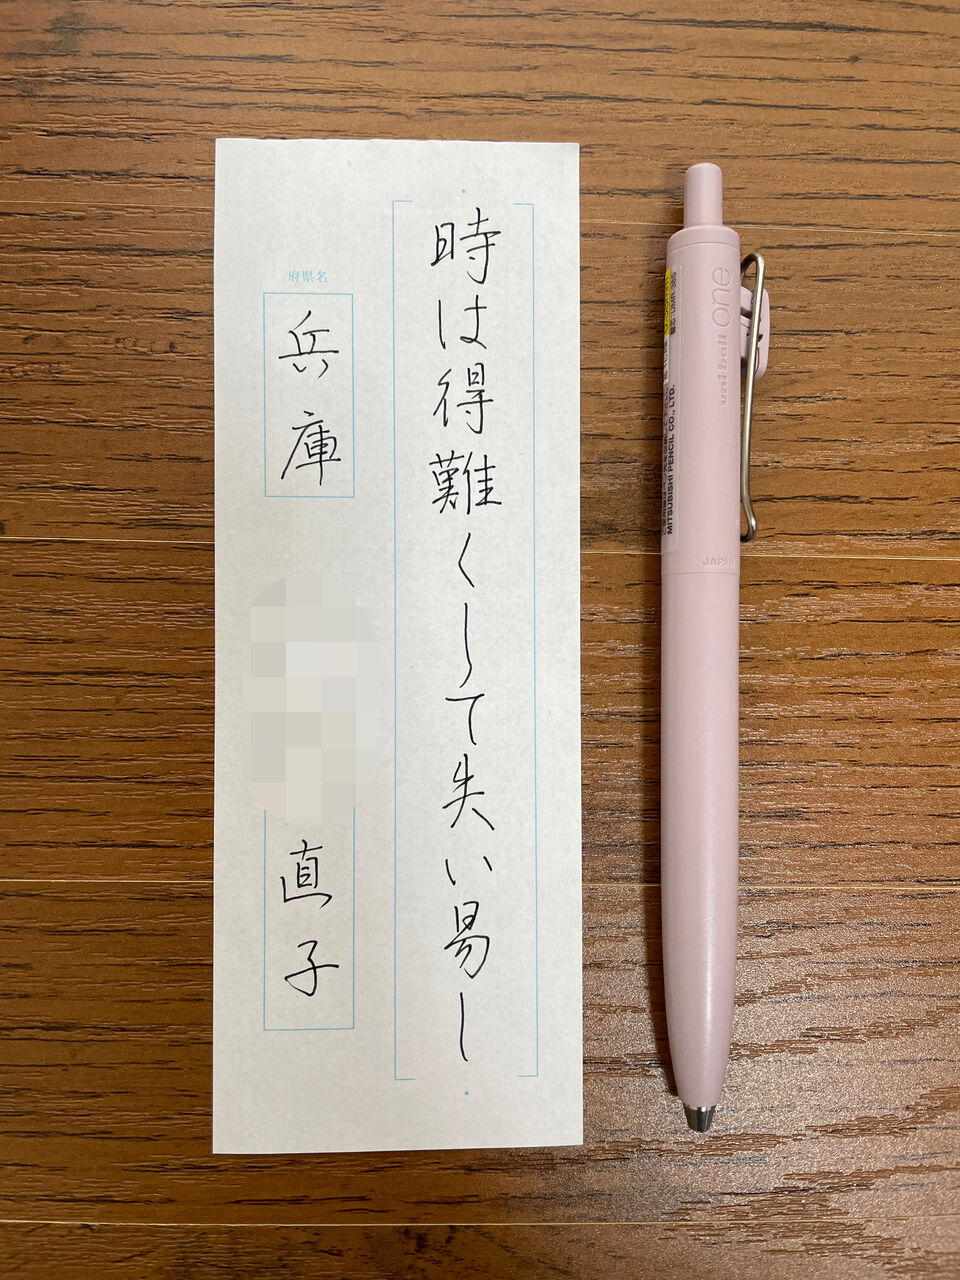 時は得難くして失い易し
府県名
兵庫
直子
uni-ball one
MITSUBISHI PENCIL CO., LTD.
JAPAN